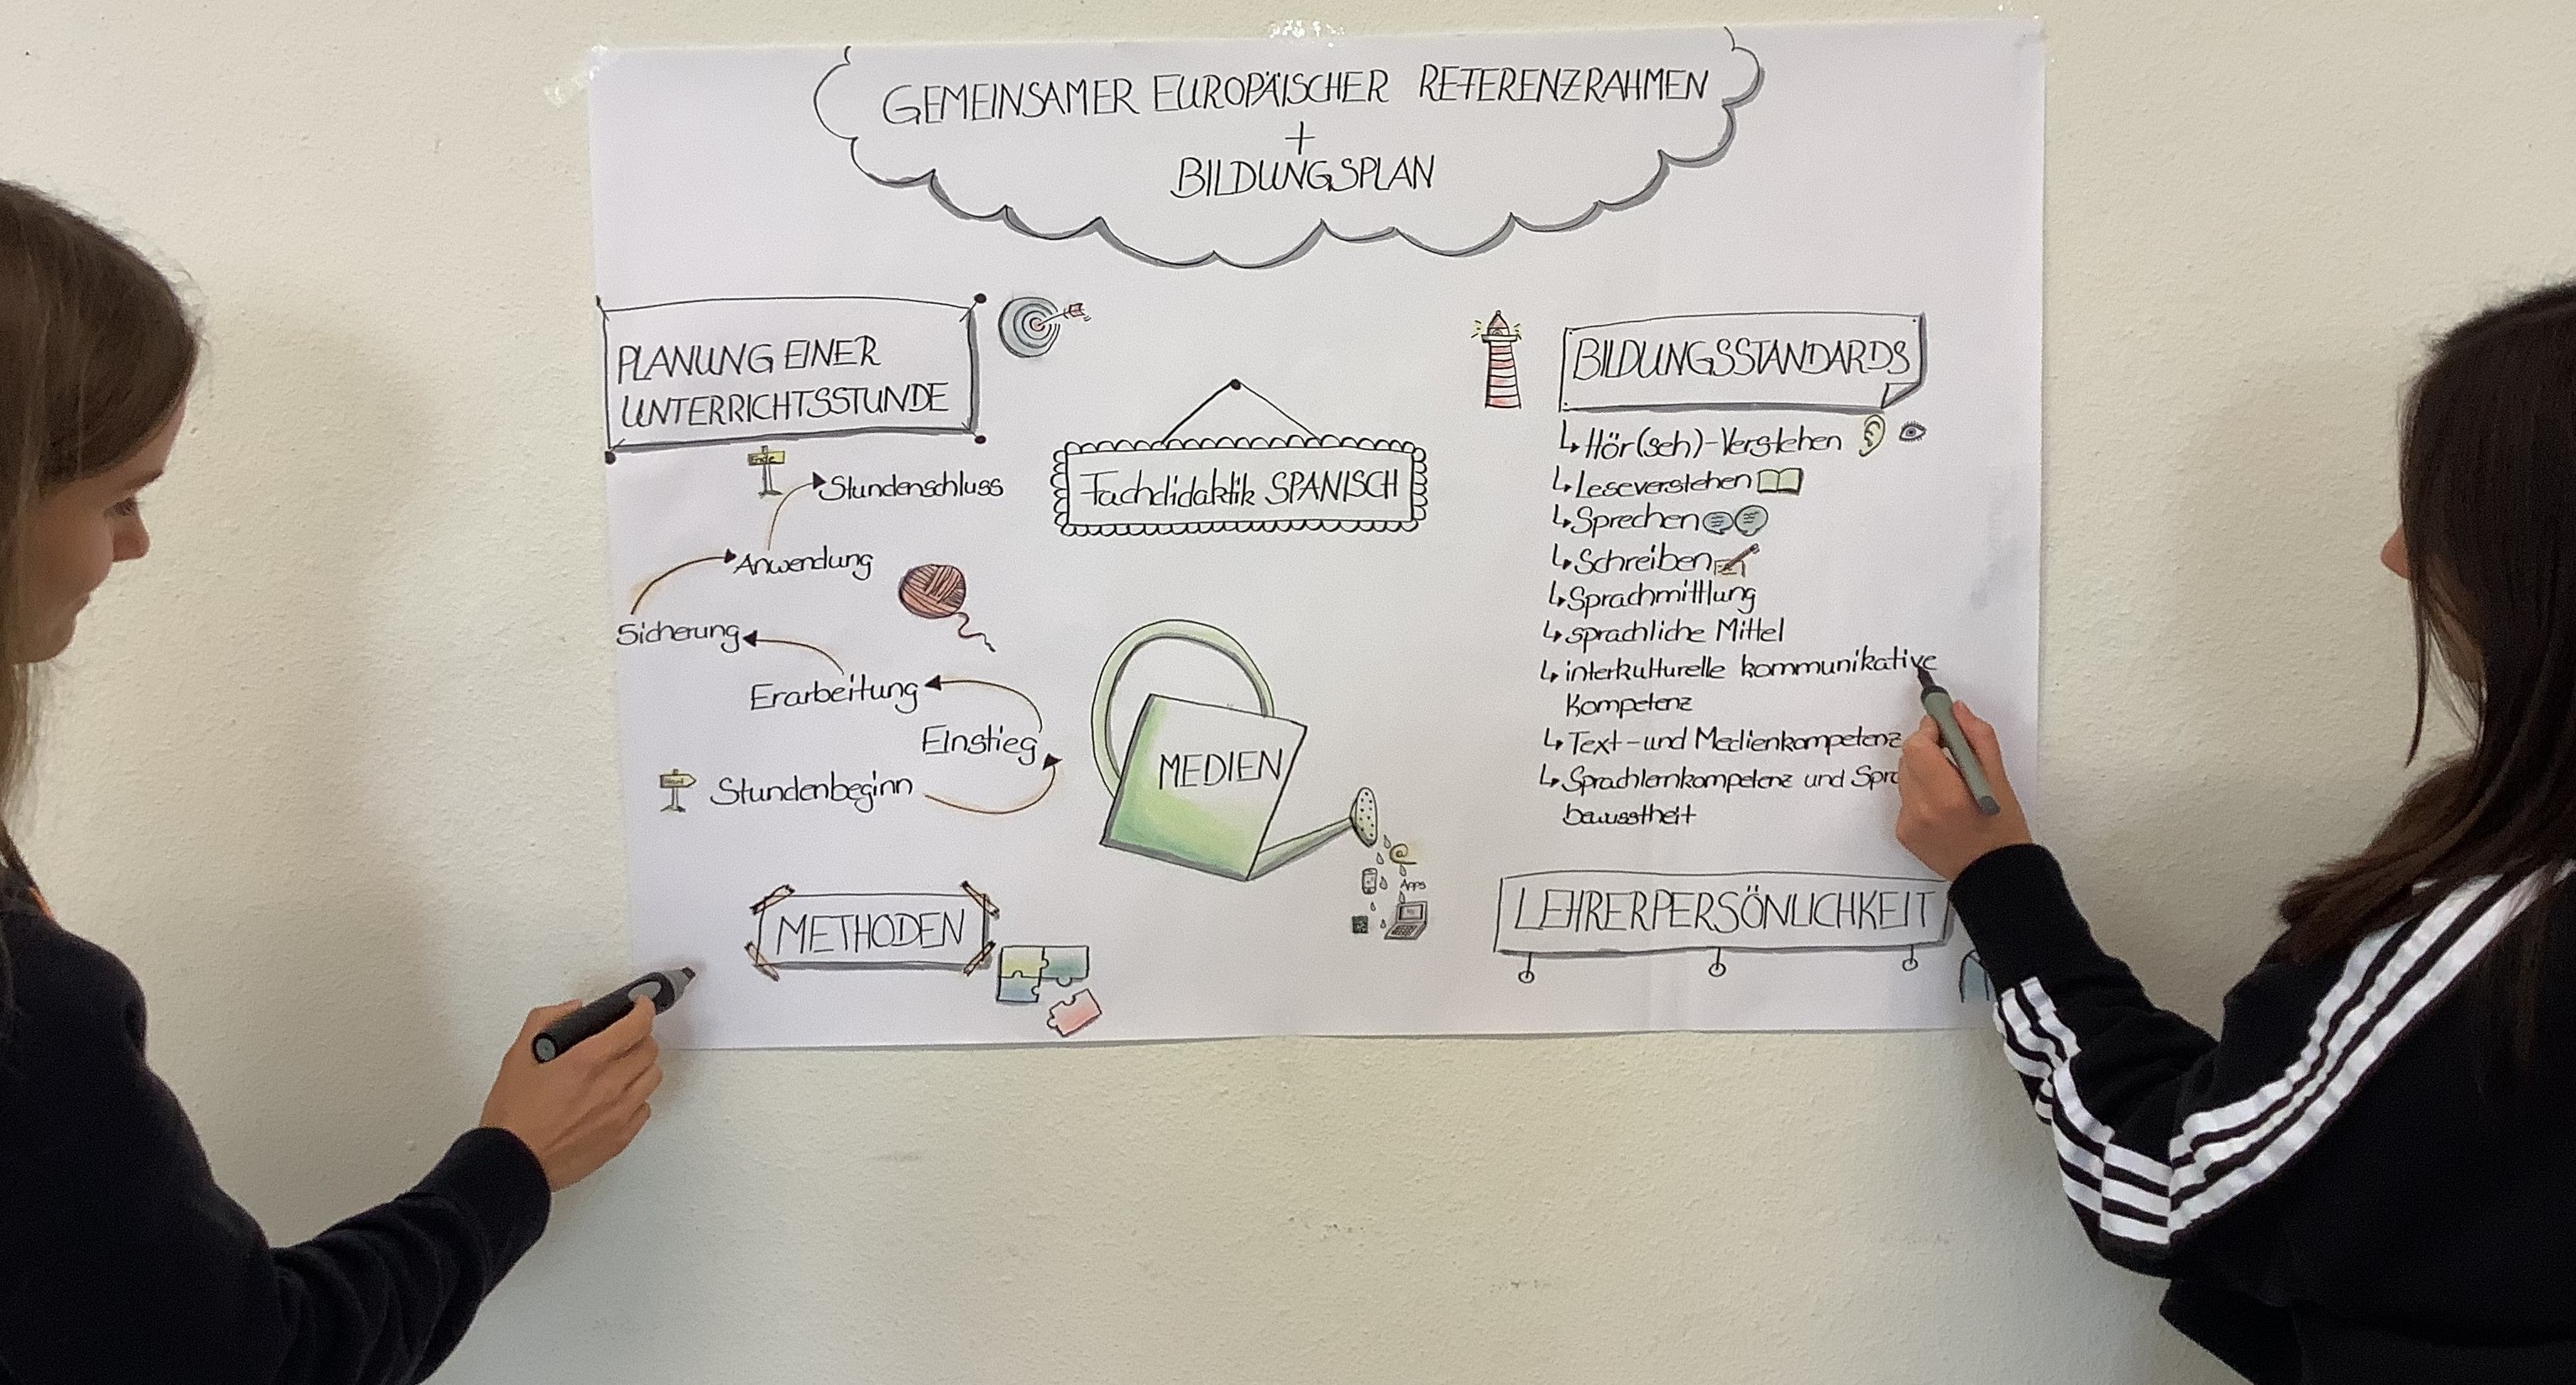 GEMEINSAMER EUROPÄISCHER REFERENZRAHMEN
+
BILDUNGSPLAN
PLANUNG EINER
UNTERRICHTSSTUNDE
Ende
Stundenschluss
Anwendung
Sicherung
Erarbeitung
Einstieg
Stundenbeginn
Fachdidaktik SPANISCH
MEDIEN
@
Apps
METHODEN
BILDUNGSSTANDARDS
↳ Hör(seh)-Verstehen
↳ Leseverstehen
↳ Sprechen
↳ Schreiben
↳ Sprachmittlung
↳ sprachliche Mittel
↳ interkulturelle kommunikative
Kompetenz
↳ Text- und Medienkompetenz
↳ Sprachlernkompetenz und Spra
bewusstheit
LEHRERPERSÖNLICHKEIT